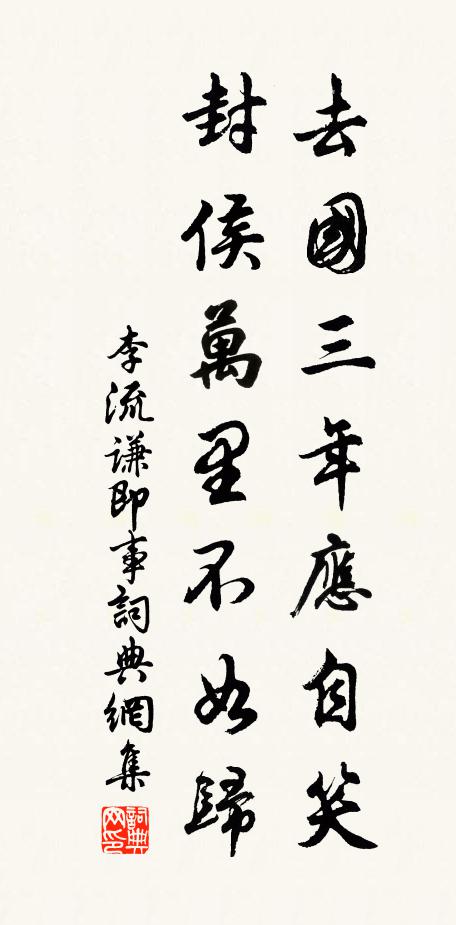 去國三年應自笑
封侯萬里不如歸
李流谦即事詞典網集
詞典
网印